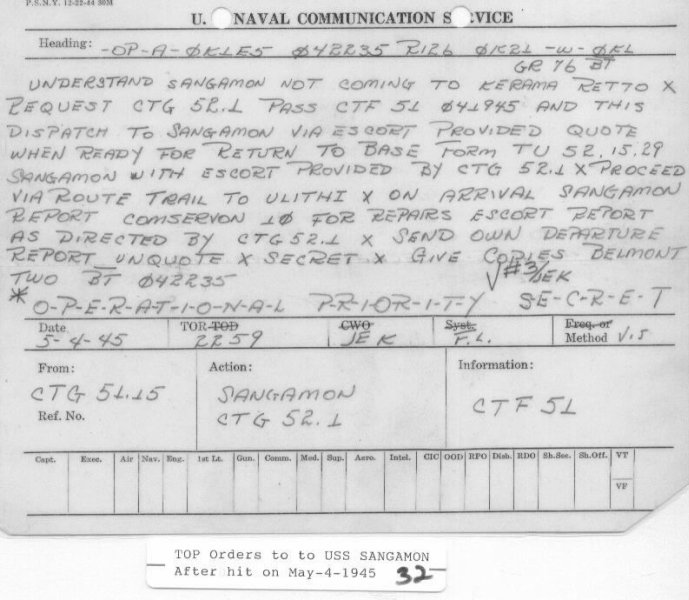 P.S.N.Y. 12-22-44 30M
U. NAVAL COMMUNICATION S VICE
Heading: -OP-A-ØK1E5 Ø42235 R126 ØK21 -W-ØKL
GR 76 BT
UNDERSTAND SANGAMON NOT COMING TO KERAMA RETTO X
REQUEST CTG 52.1 PASS CTF 51 Ø41945 AND THIS
DISPATCH TO SANGAMON VIA ESCORT PROVIDED QUOTE
WHEN READY FOR RETURN TO BASE FORM TU 52.15.29
SANGAMON WITH ESCORT PROVIDED BY CTG 52.1 X PROCEED
VIA ROUTE TRAIL TO ULITHI X ON ARRIVAL SANGAMON
REPORT COMSERVON 1Ø FOR REPAIRS ESCORT REPORT
AS DIRECTED BY CTG 52.1 X SEND OWN DEPARTURE
REPORT UNQUOTE X SECRET X GIVE COPIES BELMONT
TWO BT Ø42235 √#3/JEK
* O-P-E-R-A-T-I-O-N-A-L P-R-I-O-R-I-T-Y S-E-C-R-E-T
Date TOR-TOD CWO Syst. Freq. or
5-4-45 2259 JEK F.L. Method VIS
From: Action: Information:
CTG 51.15 SANGAMON CTF 51
Ref. No. CTG 52.1
Capt. Exec. Air Nav. Eng. 1st Lt. Gun. Comm. Med. Sup. Aero. Intel. CIC OOD RPO Dish. RDO Sh.Sec. Sh.Off. VT
VF
TOP Orders to to USS SANGAMON
After hit on May-4-1945 32